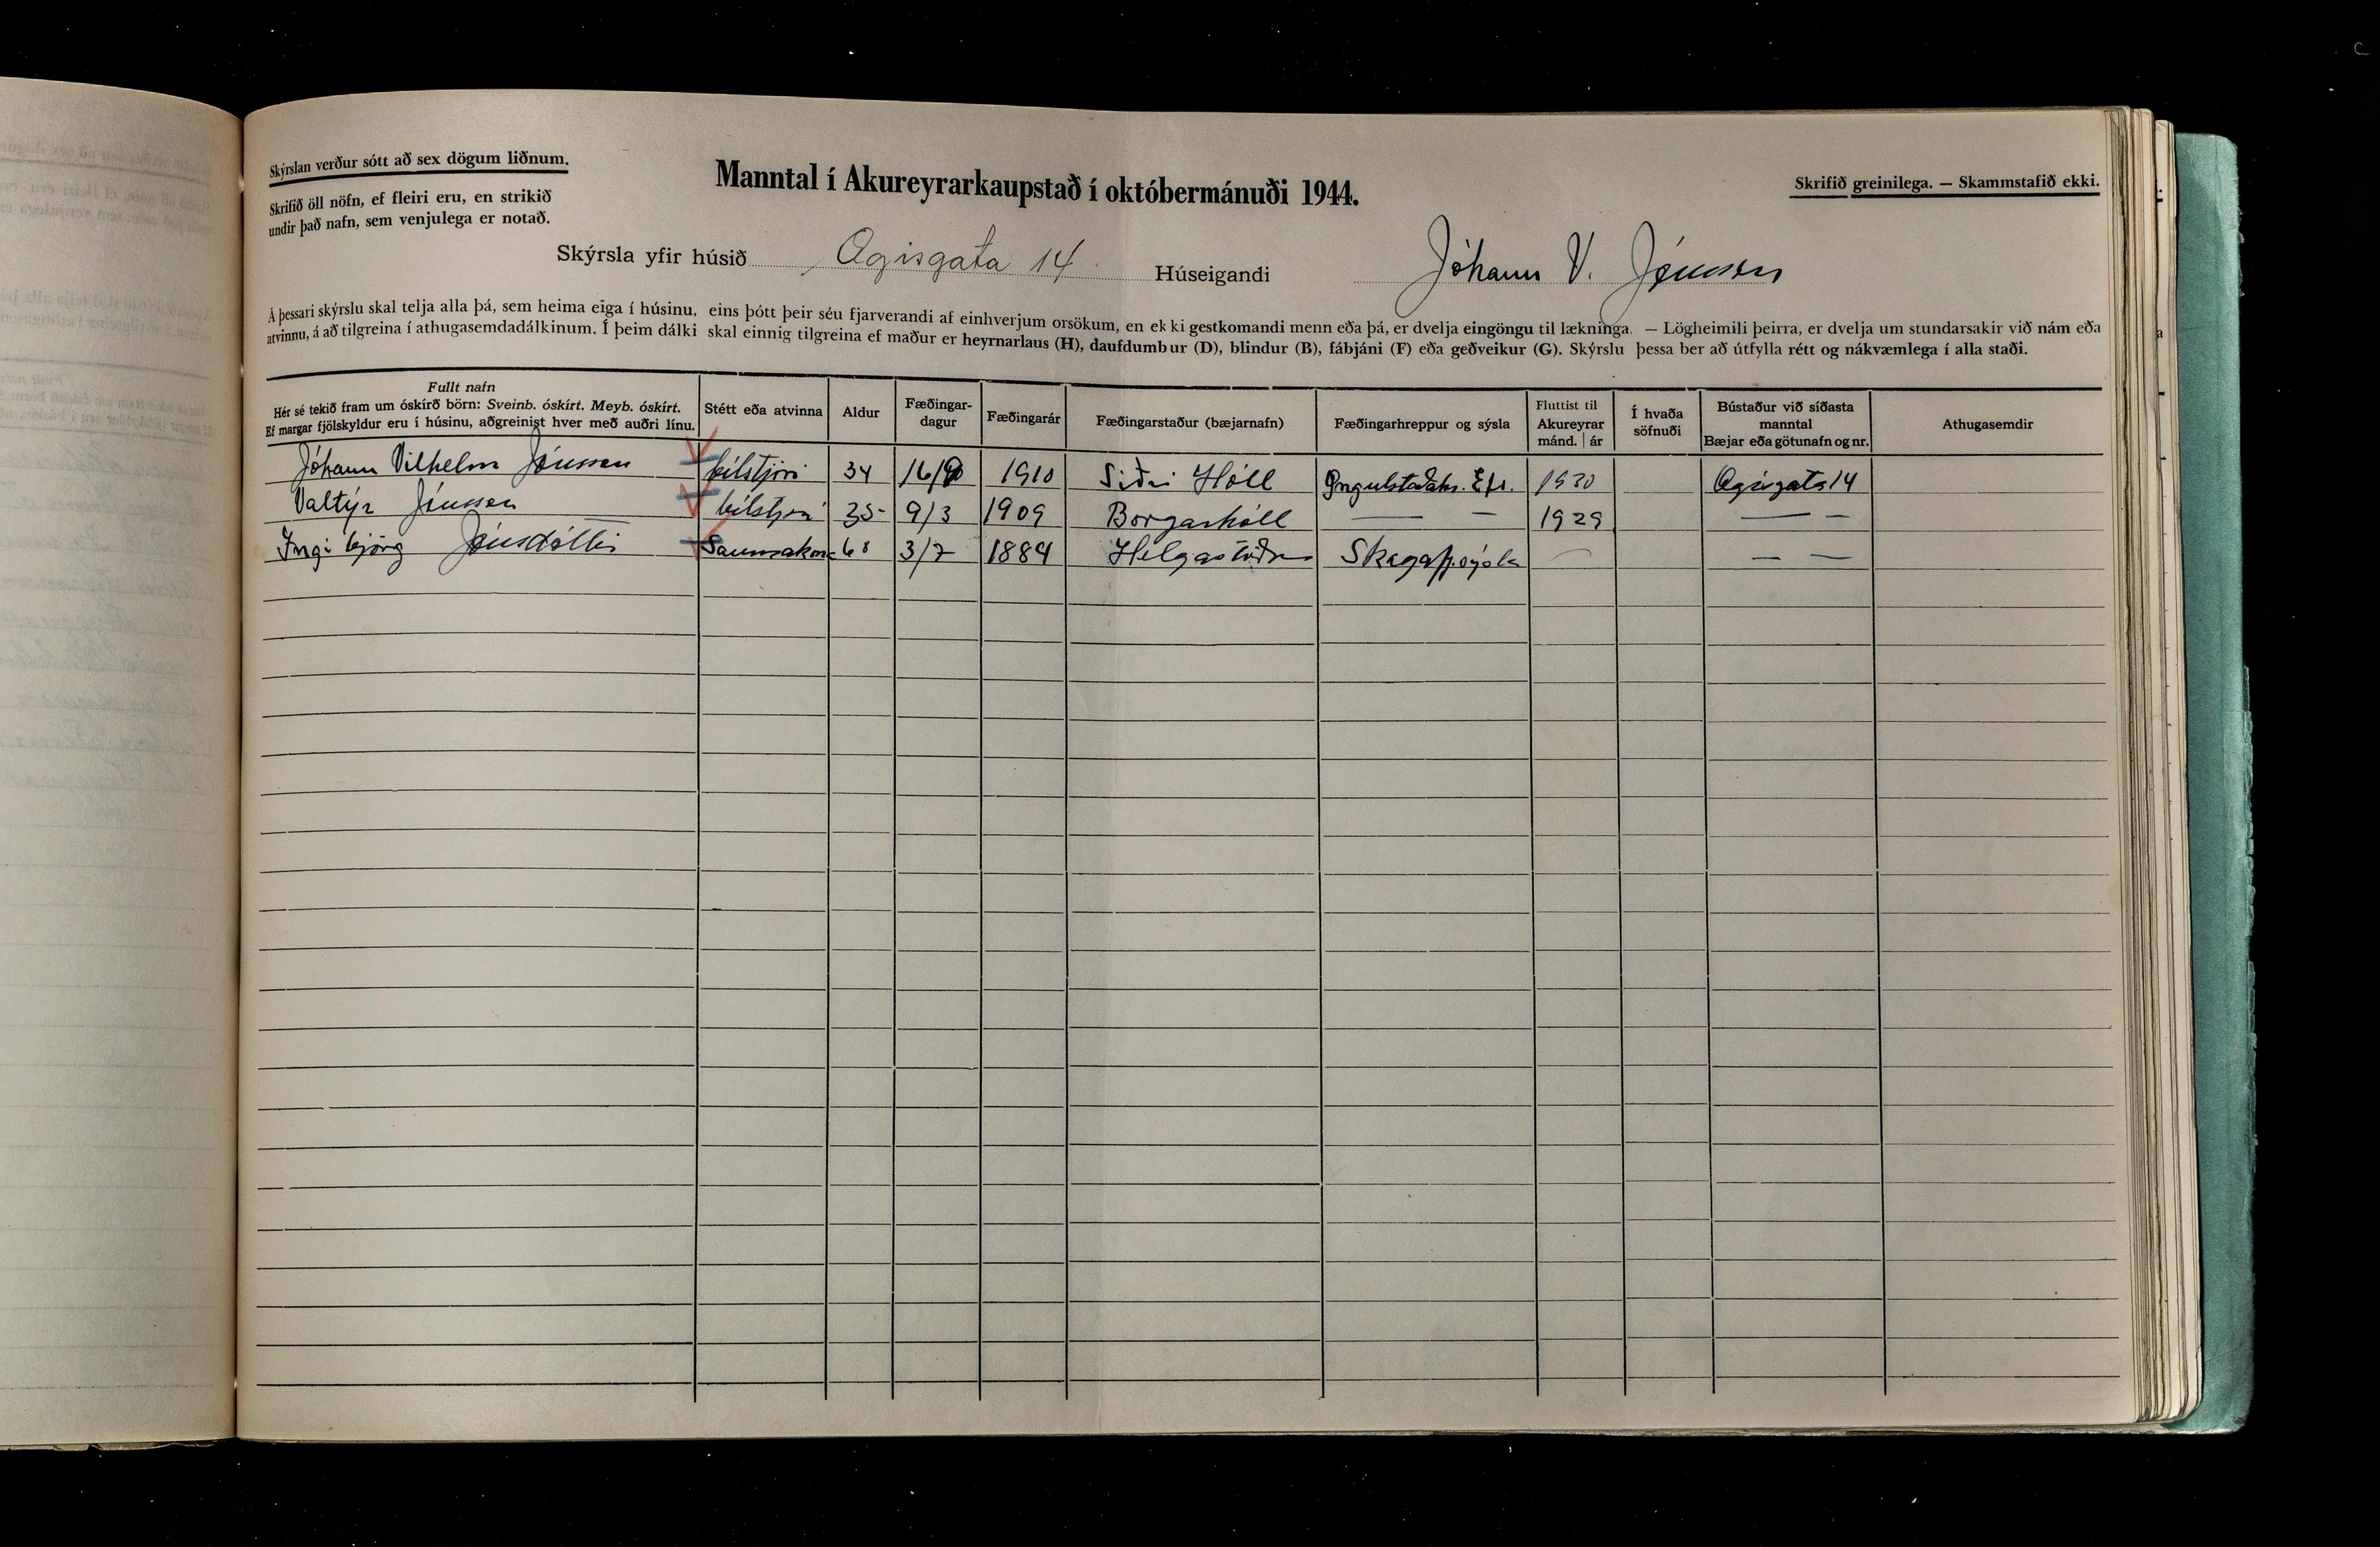 Skýrslan verður sótt að sex dögum liðnum.
Skrifið öll nöfn, ef fleiri eru, en strikið
undir það nafn, sem venjulega er notað.
Manntal í Akureyrarkaupstað í októbermánuði 1944.
Skrifið greinilega. — Skammstafið ekki.
Skýrsla yfir húsið Ægisgata 14 Húseigandi Jóhann V. Jónsson
Á þessari skýrslu skal telja alla þá, sem heima eiga í húsinu, eins þótt þeir séu fjarverandi af einhverjum orsökum, en ekki gestkomandi menn eða þá, er dvelja eingöngu til lækninga. — Lögheimili þeirra, er dvelja um stundarsakir við nám eða
atvinnu, á að tilgreina í athugasemdadálkinum. Í þeim dálki skal einnig tilgreina ef maður er heyrnarlaus (H), daufdumbur (D), blindur (B), fábjáni (F) eða geðveikur (G). Skýrslu þessa ber að útfylla rétt og nákvæmlega í alla staði.
Fullt nafn
Hér sé tekið fram um óskírð börn: Sveinb. óskírt. Meyb. óskírt.
Ef margar fjölskyldur eru í húsinu, aðgreinist hver með auðri línu.
Stétt eða atvinna
Aldur
Fæðingar-
dagur
Fæðingarár
Fæðingarstaður (bæjarnafn)
Fæðingarhreppur og sýsla
Fluttist til
Akureyrar
mánd. | ár
Í hvaða
söfnuði
Bústaður við síðasta
manntal
Bæjar eða götunafn og nr.
Athugasemdir
Jóhann Vilhelm Jónsson bílstjóri 34 16/ 1910 Siðri Hóll Öngulstaðahr. Eyf. 1930 Ægisgata 14
Valtýr Jónsson bílstjóri 35 9/3 1909 Borgarhóll — — 1929 — —
Ingibjörg Jónsdóttir Saumakona 60 3/7 1884 Skagafj.sýsla — — —